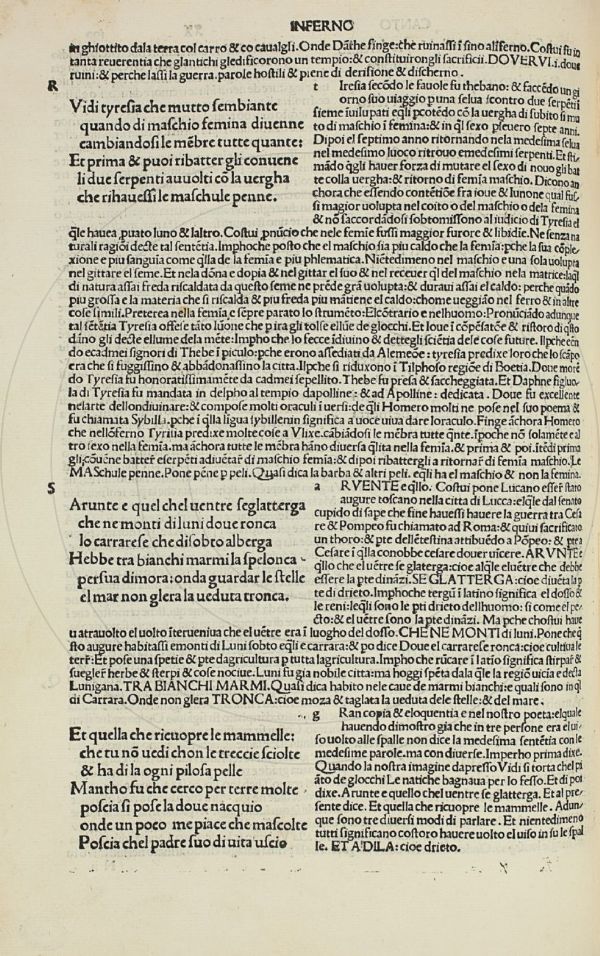 INFERNO
in ghiottito dala terra col carro & co caualgli. Onde Dāthe finge: che ruinassi ī sino alīferno. Costui fu in
tanta reuerentia che glantichi gledificorono un tempio: & constituirongli sacrificii. DOVE RVI .i. doue
ruini: & perche lassi la guerra. parole hostili & piene di derisione & discherno.
R
Vidi tyresia che mutto sembiante
quando di maschio femina diuenne
cambiandosi le mēbre tutte quante:
Et prima & puoi ribatter gli conuene
li due serpenti auuolti cō la uergha
che rihauessi le maschule penne.
t Iresia secōdo le fauole fu thebano: & faccēdo un gi
orno suo uiaggio puna selua iscontro due serpēti ī
sieme īuilupati eqli pcotēdo cō la uergha di subito si mu
to di maschio ī femina: & in ql sexo pseuero septe anni.
Dipoi el septimo anno ritornando nela medesima selua
nel medesimo luoco ritrouo emedesimi serpenti. Et sti
mādo qgli hauer forza di mutare el sexo di nouo gli bat
te colla uergha: & ritorno di femīa maschio. Dicono an
chora che essendo contētiōe fra ioue & Iunone qual fus
si magior uolupta nel coito o del maschio o dela femina
& nō saccordādosi sobtomissono al iudicio di Tyresia el
qle hauea ꝓuato luno & laltro. Costui ꝓnūcio che nele femīe fussi maggior furore & libidīe. Ne senza na
turali ragiōi decte tal sentētia. Imphoche posto che el maschio sia piu caldo che la femīa: pche la sua cōple
xione e piu sanguīa come qlla de la femīa e piu phlematica. Niētedimeno nel maschio e una sola uolupta
nel gittare el seme. Et nela dōna e dopia & nel gittar el suo & nel receuer ql del maschio nela matrice: laql
di natura assai freda riscaldata da questo seme ne prēde grā uolupta: & duraui assai el caldo: perche quādo
piu grossa e la materia che si riscalda & piu freda piu mātiene el caldo: chome ueggiāo nel ferro & in altre
cose simili. Preterea nella femīa, e sēpre parato lo strumēto: Elcōtrario e nelhuomo: Pronūciādo adunque
tal sētētia Tyresia offese tāto Iūone che p ira gli tolse ellūe de glocchi. Et Ioue ī cōpēsatōe & ristoro di qsto
dāno gli decte ellume dela mēte: Impho che lo fecce īdiuino & dettegli sciētia dele cose future. Ilpche cēn
do ecadmei signori di Thebe ī piculo: pche erono assediati da Alemeōe: tyresia predixe loro che lo scāpo
era che si fuggissino & abbādonassino la citta. Ilpche si riduxono ī Tilphoso regiōe di Boetia. Doue morē
do Tyresia fu honoratissimamēte da cadmei sepellito. Thebe fu presa & saccheggiata. Et Daphne figluo
la di Tyresia fu mandata in delpho al tempio dapolline: & ad Apolline: dedicata. Doue fu excellente
nelarte dellondiuinare: & compose molti oraculi ī uersi: de qli Homero molti ne pose nel suo poema &
fu chiamata Sybilla. pche ī qlla ligua sybillenin significa a uoce uiua dare loraculo. Finge āchora Homero
che nellōferno Tyrisia predixe molte cose a Vlixe. cābiādosi le mēbra tutte qnte. ipoche nō solamēte cal
tro sexo nella femīa. ma āchora tutte le mēbra hāno diuersa qlita nella femīa. & prima & poi. itēdi prima
gli cōuēne batter eserpēti adiuētar di maschio femīa: & di poi ribattergli a ritornar di femīa maschio. Le
MASchule penne. Pone pēne p peli. Quasi dica la barba & altri peli. eqli ha el maschio & non la femina.
S
Arunte e quel chel uentre seglatterga
che ne monti di luni doue ronca
lo carrarese che disobto alberga
Hebbe tra bianchi marmi la spelonca
per sua dimora: onda guardar le stelle
el mar non glera la ueduta tronca.
a RVENTE e qllo. Costui pone Lucano esser stato
augure toscano nella citta di Lucca: elqle dal senato
cupido di sape che fine hauessi hauere la guerra tra Cesa
re & Pompeo fu chiamato ad Roma: & quiui sacrificato
un thoro: & pte dellestina attribuēdo a Pōpeo: & ptra
Cesare ī qlla conobbe cesare douer uīcere. ARVNTE e
qllo che el uētre se glaterga: cioe alqle eluētre che debbe
essere la pte dināzi. SE GLATTERGA: cioe diuēta la p
te di drieto. Imphoche tergū ī latino significa el dosso &
le reni: leqli sono le pti drieto dellhuomo: si come el pe
cto: & el uētre sono la pte dināzi. Ma pche chostui haue
u atrauolto el uolto īterueniua che el uētre era ī luogho del dosso. CHE NE MONTI di luni. Pone che q
sto augure habitassi emonti di Luni sobto eqli e carrara: & po dice Doue el carrarese ronca: cioe cultiua le
terr: Et pose una spetie & pte dagricultura p tutta lagricultura. Impho che rūcare ī latīo significa stirpar &
sueglier herbe & sterpi & cose nociue. Luni fu gia nobile citta: ma hoggi spēta dala qle la regiōe uicīa e decta
Lunigana. TRA BIANCHI MARMI. Quasi dica habito nele caue de marmi bianchi: e quali sono in ql
di Carrara. Onde non glera TRONCA: cioe moza & taglata la ueduta dele stelle: & del mare.
Et quella che ricuopre le mammelle:
che tu nō uedi chon le treccie sciolte
& ha di la ogni pilosa pelle
Mantho fu che cerco per terre molte
poscia si pose la doue nacquio
onde un poco me piace che mascolte
Poscia chel padre suo di uita uscio
g Ran copia & eloquentia e nel nostro poeta: elquale
hauendo dimostro gia che in tre persone era el ui
so uolto alle spalle non dice la medesima sentētia con le
medesime parole. ma con diuerse. Imperho prima dixe.
Quando la nostra imagine dapresso Vidi si torta chel pi
āto de glocchi Le natiche bagnaua per lo fesso. Et di poi
dixe. Arunte e quello chel uentre se glatterga. Et al pre
sente dice. Et quella che ricuopre le mammelle. Adun
que sono tre diuersi modi di parlare. Et nientedimeno
tutti significano costoro hauere uolto el uiso in su le spal
le. ET A DILA: cioe drieto.